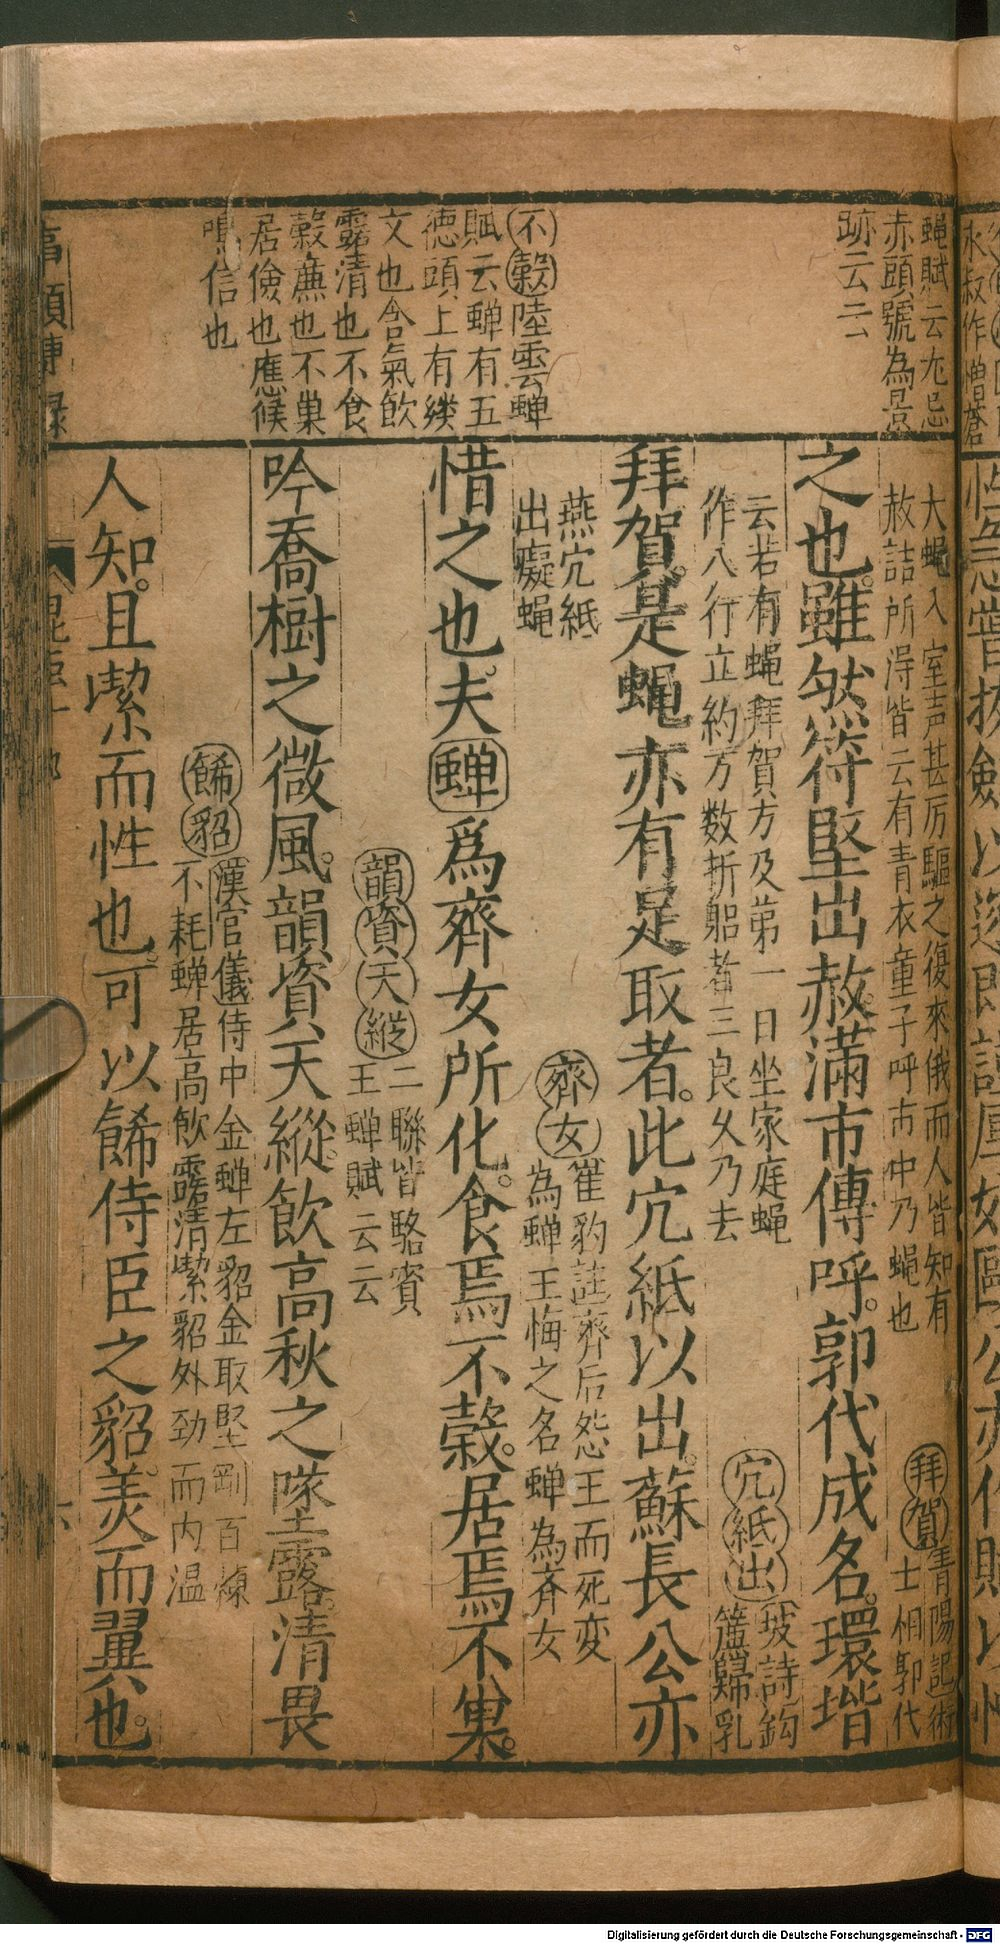 蝿賦云尤忌
赤頭號為景
跡云云
不穀陸雲蝉
賦云蝉有五
徳頭上有緌
文也含氣飲
露清也不食
穀廉也不巢
居儉也應候
鳴信也
大蝿入室声甚厉驅之復來俄而人皆知有
赦詰所淂皆云有青衣童子呼市中乃蝿也
拜賀青陽記術
士相郭代
之也。雖然符堅出赦。滿市傳呼。郭代成名。環堦
云若有蝿拜賀方及第一日坐家庭蝿
作八行立約方数折躬者三良乆乃去
冗紙出坡詩鈎
簾歸乳
拜賀。是蝿亦有足取者。此冗紙以出。蘇長公亦
燕冗紙
出癡蝿
齊女崔豹註齊后怨王而死变
為蝉王悔之名蝉為斉女
惜之也。夫蝉爲齊女所化。食焉不穀。居焉不巢。
韻資天縦二聯皆駱賓
王蝉賦云云
吟喬樹之微風。韻資天縱。飲高秋之墜露。清畏
餙貂漢官儀侍中金蝉左貂金取堅剛百煉
不耗蝉居高飲露清潔貂外劲而内温
人知。且潔而性也。可以餙侍臣之貂。美而翼也。
Digitalisierung gefördert durch die Deutsche Forschungsgemeinschaft - DFG